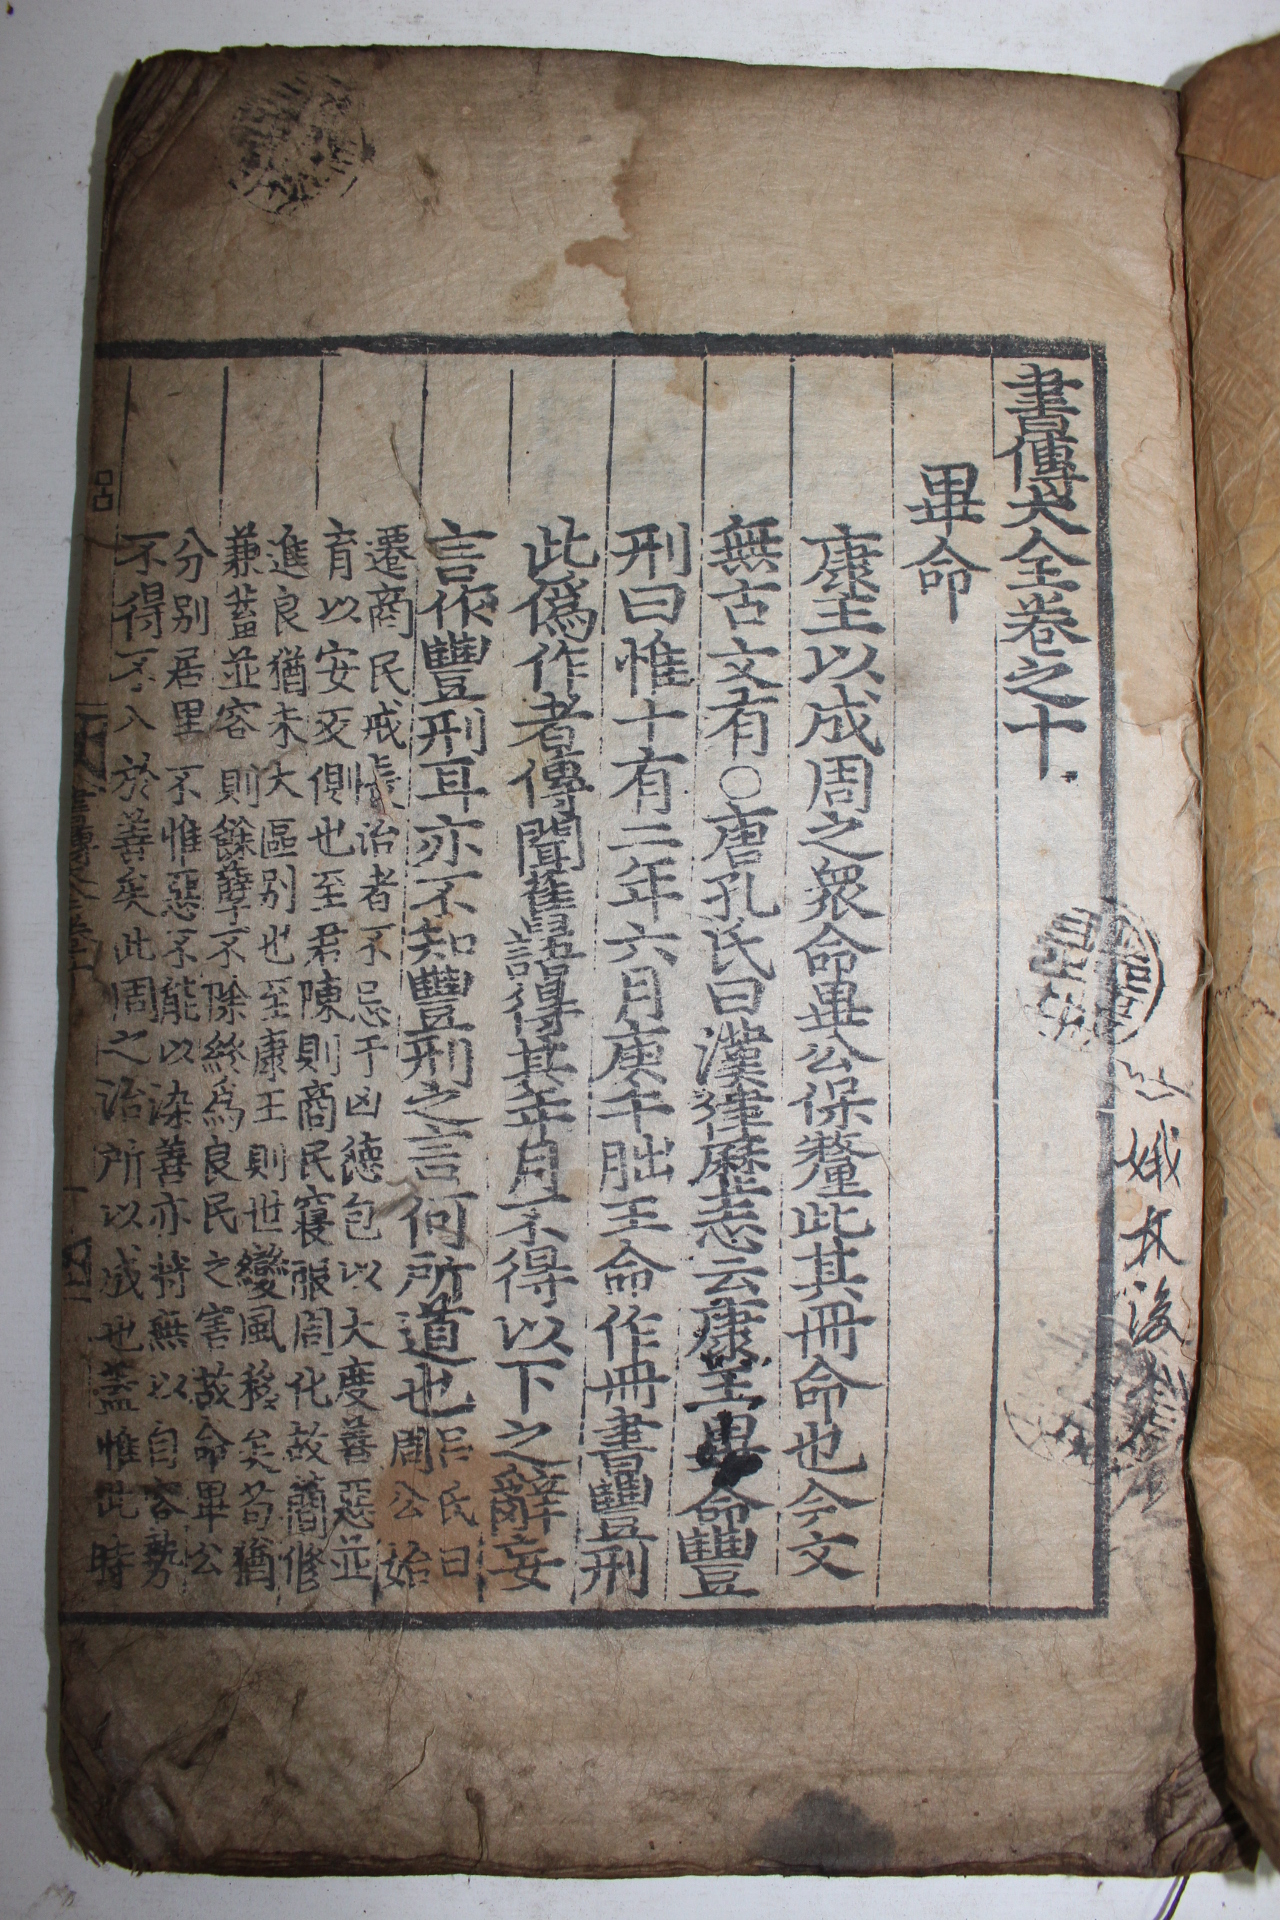 書傳大全卷之十
畢命
康王以成周之衆命畢公保釐此其冊命也今文
無古文有○唐孔氏曰漢律歷志云康王畢命豐
刑曰惟十有二年六月庚午朏王命作冊書豐刑
此僞作者傳聞舊語得其年月不得以下之辭妄
言作豐刑耳亦不知豐刑之言何所道也呂氏曰
周公始
遷商民戒愼治者不忌于凶德包以大度善惡並
育以安反側也至君陳則商民寖服周化故簡修
進良猶未大區別也至康王則世變風移矣苟猶
兼蓄並容則餘孽不除終爲良民之害故命畢公
分別居里不惟惡不能以染善亦將無以自容勢
不得不入於善矣此周之治所以成也蓋惟此時